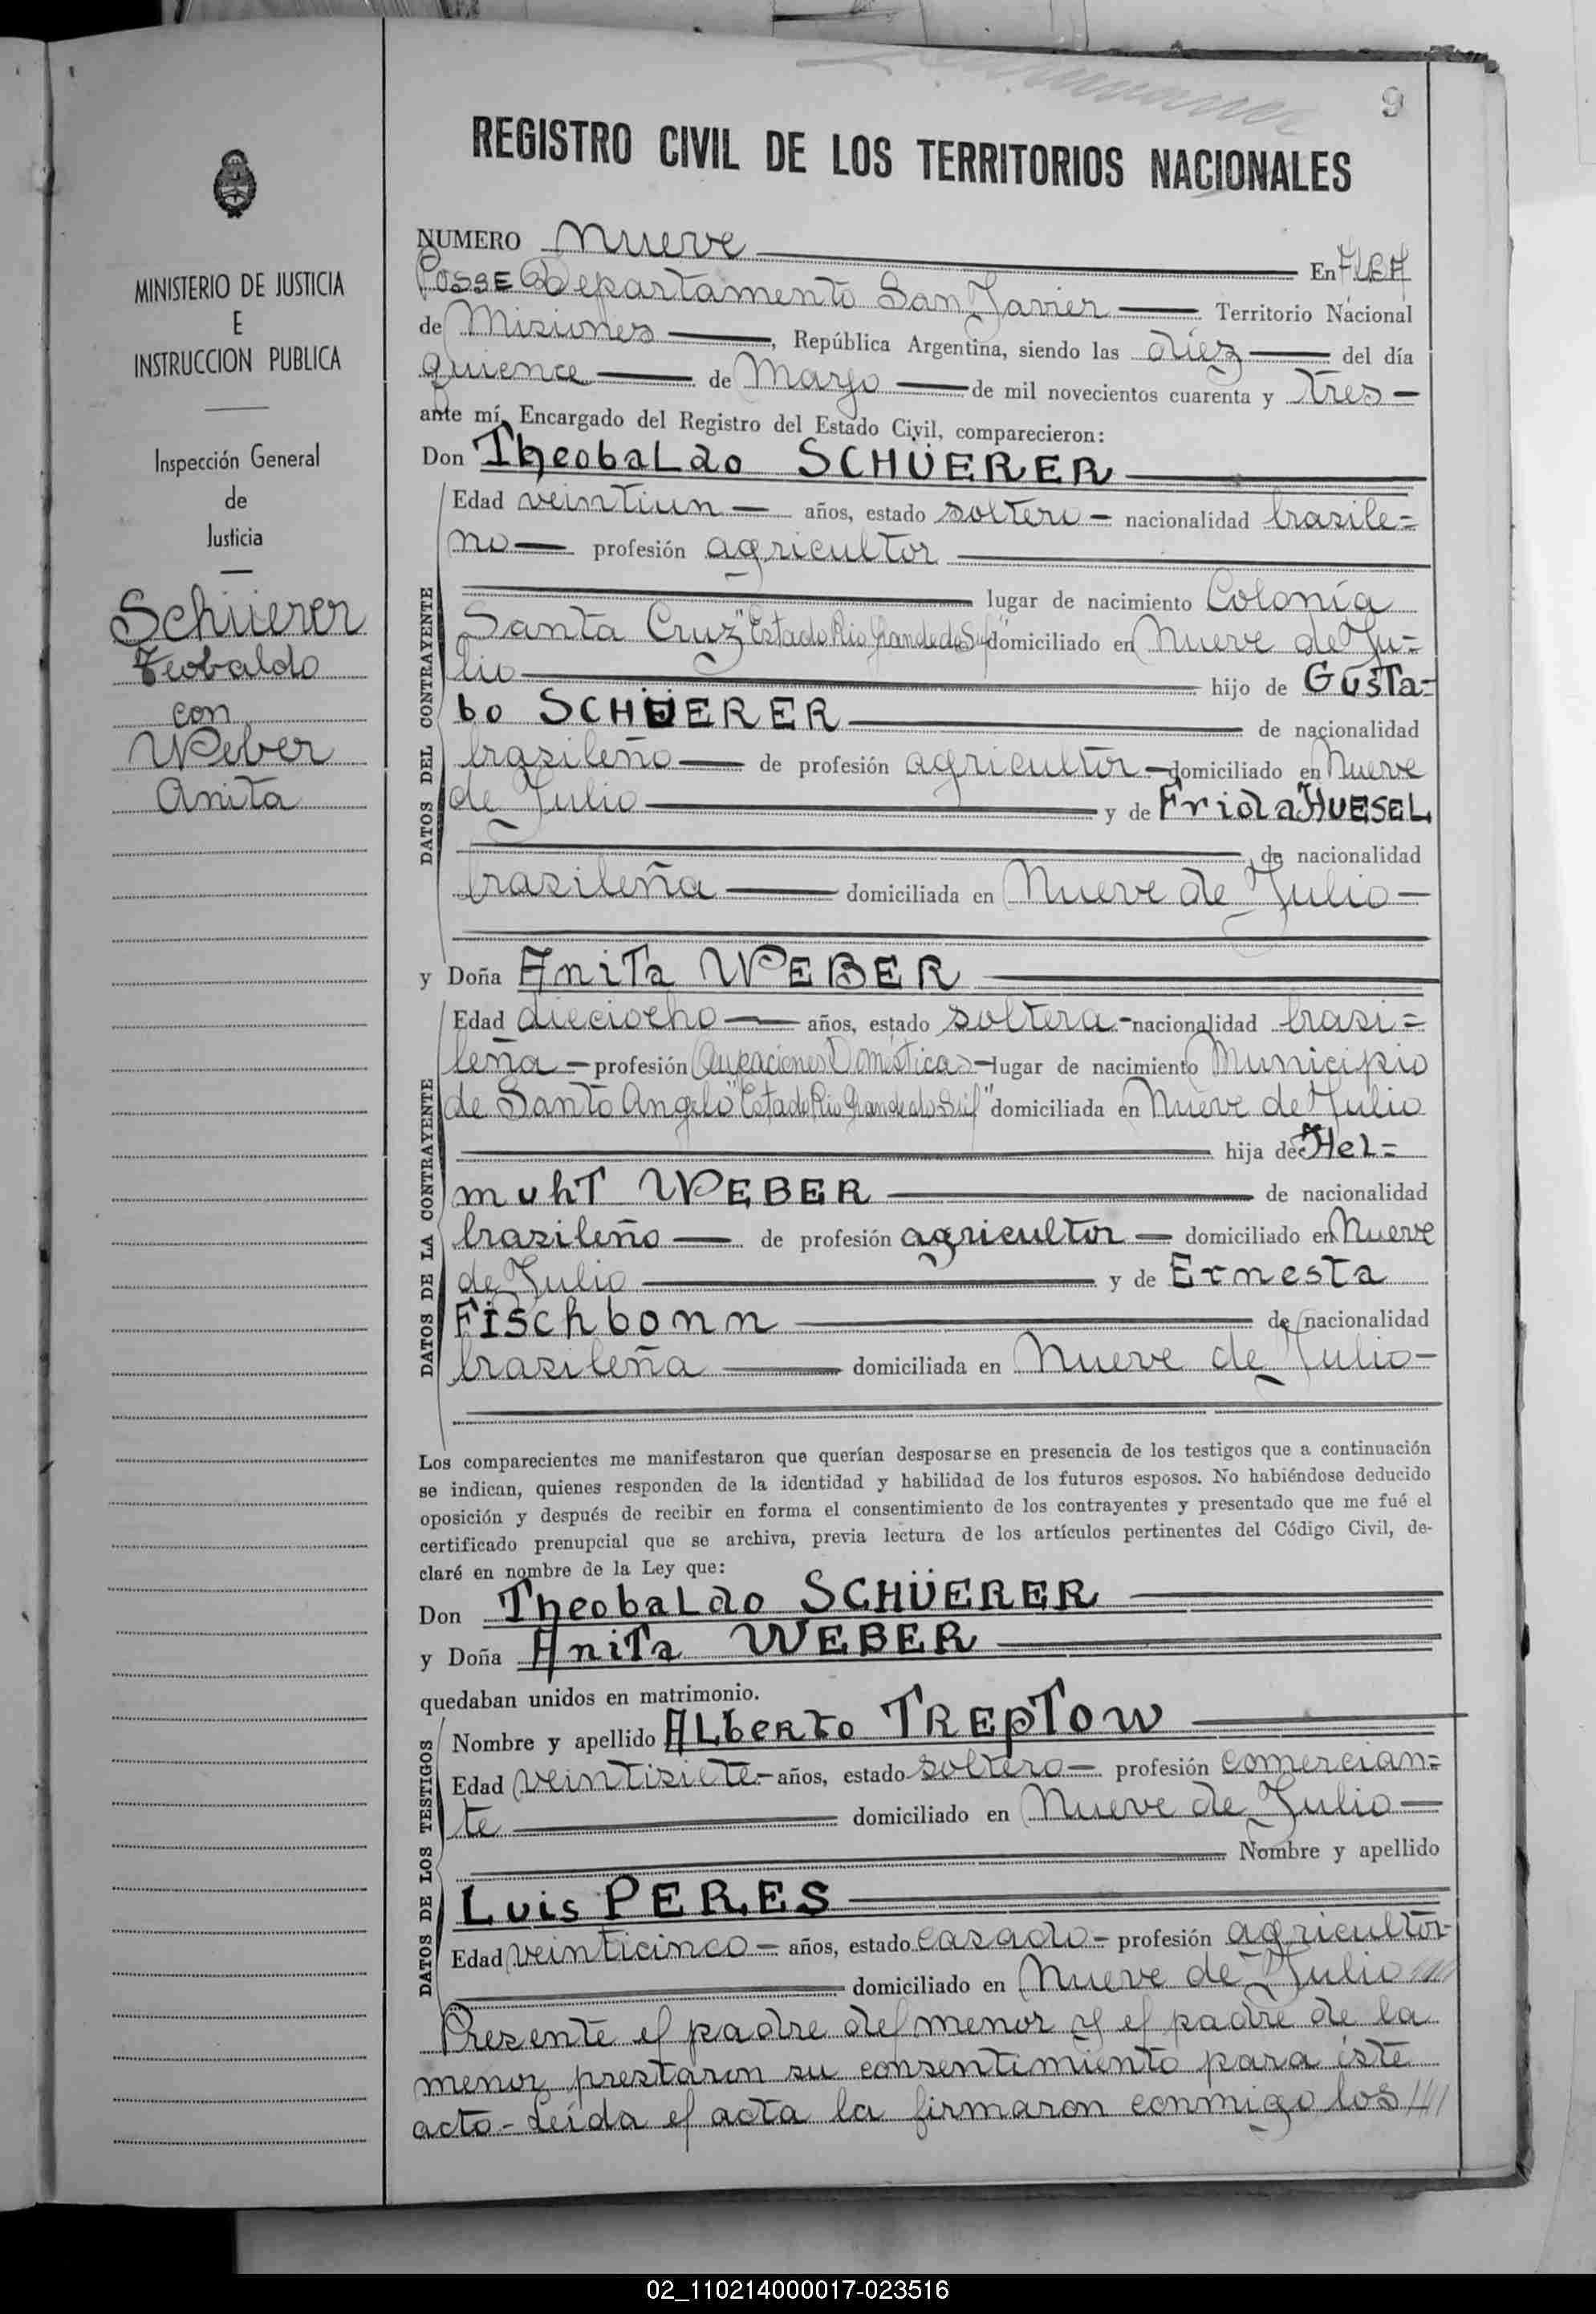 9
REGISTRO CIVIL DE LOS TERRITORIOS NACIONALES
MINISTERIO DE JUSTICIA
E
INSTRUCCION PUBLICA
Inspección General
de
Justicia
Schüerer
Teobaldo
con
Weber
Anita
NUMERO Nueve En ALBA
POSSE Departamento San Javier Territorio Nacional
de Misiones, República Argentina, siendo las diez del día
quience de Marzo de mil novecientos cuarenta y tres
ante mí, Encargado del Registro del Estado Civil, comparecieron:
Don Theobaldo SCHÜERER
DATOS DEL CONTRAYENTE
Edad veintiun años, estado soltero nacionalidad brasile=
no profesión agricultor
lugar de nacimiento Colonia
Santa Cruz "Estado Rio Grande do Sul" domiciliado en Nueve de Ju=
lio hijo de Gusta=
bo SCHÜERER de nacionalidad
brasileño de profesión agricultor domiciliado en Nueve
de Julio y de Frida HUESEL
de nacionalidad
brasileña domiciliada en Nueve de Julio
y Doña Anita WEBER
DATOS DE LA CONTRAYENTE
Edad dieciocho años, estado soltera nacionalidad brasi=
leña profesión Ocupaciones Domésticas lugar de nacimiento Municipio
de Santo Angelo "Estado Rio Grande do Sul" domiciliada en Nueve de Julio
hija de Hel=
muht WEBER de nacionalidad
brasileño de profesión agricultor domiciliado en Nueve
de Julio y de Ernesta
Fischbonn de nacionalidad
brasileña domiciliada en Nueve de Julio
Los comparecientes me manifestaron que querían desposarse en presencia de los testigos que a continuación
se indican, quienes responden de la identidad y habilidad de los futuros esposos. No habiéndose deducido
oposición y después de recibir en forma el consentimiento de los contrayentes y presentado que me fué el
certificado prenupcial que se archiva, previa lectura de los artículos pertinentes del Código Civil, de-
claré en nombre de la Ley que:
Don Theobaldo SCHÜERER
y Doña Anita WEBER
quedaban unidos en matrimonio.
DATOS DE LOS TESTIGOS
Nombre y apellido Alberto TREPTOW
Edad veintisiete años, estado soltero profesión comercian=
te domiciliado en Nueve de Julio
Nombre y apellido
Luis PERES
Edad veinticinco años, estado casado profesión agricultor
domiciliado en Nueve de Julio
Presente el padre del menor y el padre de la
menor prestaron su consentimiento para iste
acto- Leida el acta la firmaron conmigo los
02_110214000017-023516